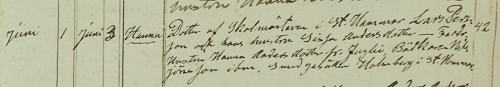 juni 1 juni 3 Hanna Dotter af Skolmästaren i St. Hammar Lars Pers-
son och hans hustru Sissa Anders dotter — 42
Hustru Hanna Anders dotter fr. Fuglie, Båtkarlen Nils
Jönsson ibm, Smedgesällen Holmberg i St. Hammar